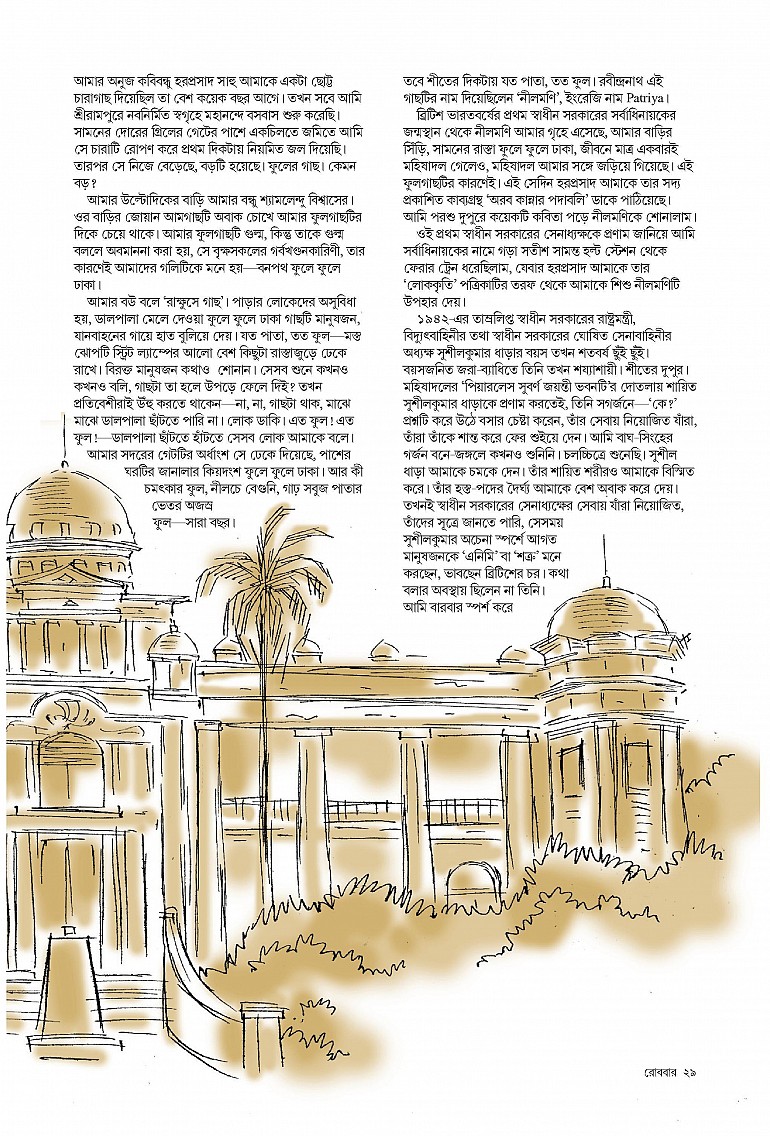 আমার অনুজ কবিবন্ধু হরপ্রসাদ সাহু আমাকে একটা ছোট্ট
চারাগাছ দিয়েছিল তা বেশ কয়েক বছর আগে। তখন সবে আমি
শ্রীরামপুরে নবনির্মিত স্বগৃহে মহানন্দে বসবাস শুরু করেছি।
সামনের দোরের গ্রিলের গেটের পাশে একচিলতে জমিতে আমি
সে চারাটি রোপণ করে প্রথম দিকটায় নিয়মিত জল দিয়েছি।
তারপর সে নিজে বেড়েছে, বড়টি হয়েছে। ফুলের গাছ। কেমন
বড়?
আমার উল্টোদিকের বাড়ি আমার বন্ধু শ্যামলেন্দু বিশ্বাসের।
ওর বাড়ির জোয়ান আমগাছটি অবাক চোখে আমার ফুলগাছটির
দিকে চেয়ে থাকে। আমার ফুলগাছটি গুল্ম, কিন্তু তাকে গুল্ম
বললে অবমাননা করা হয়, সে বৃক্ষসকলের গর্বখণ্ডনকারিণী, তার
কারণেই আমাদের গলিটিকে মনে হয়—বনপথ ফুলে ফুলে
ঢাকা।
আমার বউ বলে ‘রাক্ষুসে গাছ’। পাড়ার লোকেদের অসুবিধা
হয়, ডালপালা মেলে দেওয়া ফুলে ফুলে ঢাকা গাছটি মানুষজন,
যানবাহনের গায়ে হাত বুলিয়ে দেয়। যত পাতা, তত ফুল—মস্ত
ঝোপটি স্ট্রিট ল্যাম্পের আলো বেশ কিছুটা রাস্তাজুড়ে ঢেকে
রাখে। বিরক্ত মানুষজন কথাও শোনান। সেসব শুনে কখনও
কখনও বলি, গাছটা তা হলে উপড়ে ফেলে দিই? তখন
প্রতিবেশীরাই উঁহু করতে থাকেন—না, না, গাছটা থাক, মাঝে
মাঝে ডালপালা ছাঁটতে পারি না। লোক ডাকি। এত ফুল! এত
ফুল!—ডালপালা ছাঁটতে হাঁটতে সেসব লোক আমাকে বলে।
আমার সদরের গেটটির অর্ধাংশ সে ঢেকে দিয়েছে, পাশের
ঘরটির জানালার কিয়দংশ ফুলে ফুলে ঢাকা। আর কী
চমৎকার ফুল, নীলচে বেগুনি, গাঢ় সবুজ পাতার
ভেতর অজস্র
ফুল—সারা বছর।
তবে শীতের দিকটায় যত পাতা, তত ফুল। রবীন্দ্রনাথ এই
গাছটির নাম দিয়েছিলেন ‘নীলমণি’, ইংরেজি নাম Patriya।
ব্রিটিশ ভারতবর্ষের প্রথম স্বাধীন সরকারের সর্বাধিনায়কের
জন্মস্থান থেকে নীলমণি আমার গৃহে এসেছে, আমার বাড়ির
সিঁড়ি, সামনের রাস্তা ফুলে ফুলে ঢাকা, জীবনে মাত্র একবারই
মহিষাদল গেলেও, মহিষাদল আমার সঙ্গে জড়িয়ে গিয়েছে। এই
ফুলগাছটির কারণেই। এই সেদিন হরপ্রসাদ আমাকে তার সদ্য
প্রকাশিত কাব্যগ্রন্থ ‘অরব কান্নার পদাবলি’ ডাকে পাঠিয়েছে।
আমি পরশু দুপুরে কয়েকটি কবিতা পড়ে নীলমণিকে শোনালাম।
ওই প্রথম স্বাধীন সরকারের সেনাধ্যক্ষকে প্রণাম জানিয়ে আমি
সর্বাধিনায়কের নামে গড়া সতীশ সামন্ত হল্ট স্টেশন থেকে
ফেরার ট্রেন ধরেছিলাম, যেবার হরপ্রসাদ আমাকে তার
‘লোককৃতি’ পত্রিকাটির তরফ থেকে আমাকে শিশু নীলমণিটি
উপহার দেয়।
১৯৪২-এর তাম্রলিপ্ত স্বাধীন সরকারের রাষ্ট্রমন্ত্রী,
বিদ্যুৎবাহিনীর তথা স্বাধীন সরকারের ঘোষিত সেনাবাহিনীর
অধ্যক্ষ সুশীলকুমার ধাড়ার বয়স তখন শতবর্ষ ছুঁই ছুঁই।
বয়সজনিত জরা-ব্যাধিতে তিনি তখন শয্যাশায়ী। শীতের দুপুর।
মহিষাদলের ‘পিয়ারলেস সুবর্ণ জয়ন্তী ভবনটি’র দোতলায় শায়িত
সুশীলকুমার ধাড়াকে প্রণাম করতেই, তিনি সগর্জনে—‘কে?’
প্রশ্নটি করে উঠে বসার চেষ্টা করেন, তাঁর সেবায় নিয়োজিত যাঁরা,
তাঁরা তাঁকে শান্ত করে ফের শুইয়ে দেন। আমি বাঘ-সিংহের
গর্জন বনে-জঙ্গলে কখনও শুনিনি। চলচ্চিত্রে শুনেছি। সুশীল
ধাড়া আমাকে চমকে দেন। তাঁর শায়িত শরীরও আমাকে বিস্মিত
করে। তাঁর হস্ত-পদের দৈর্ঘ্য আমাকে বেশ অবাক করে দেয়।
তখনই স্বাধীন সরকারের সেনাধ্যক্ষের সেবায় যাঁরা নিয়োজিত,
তাঁদের সূত্রে জানতে পারি, সেসময়
সুশীলকুমার অচেনা স্পর্শে আগত
মানুষজনকে ‘এনিমি’ বা ‘শত্রু’ মনে
করছেন, ভাবছেন ব্রিটিশের চর। কথা
বলার অবস্থায় ছিলেন না তিনি।
আমি বারবার স্পর্শ করে
রোববার ২৯